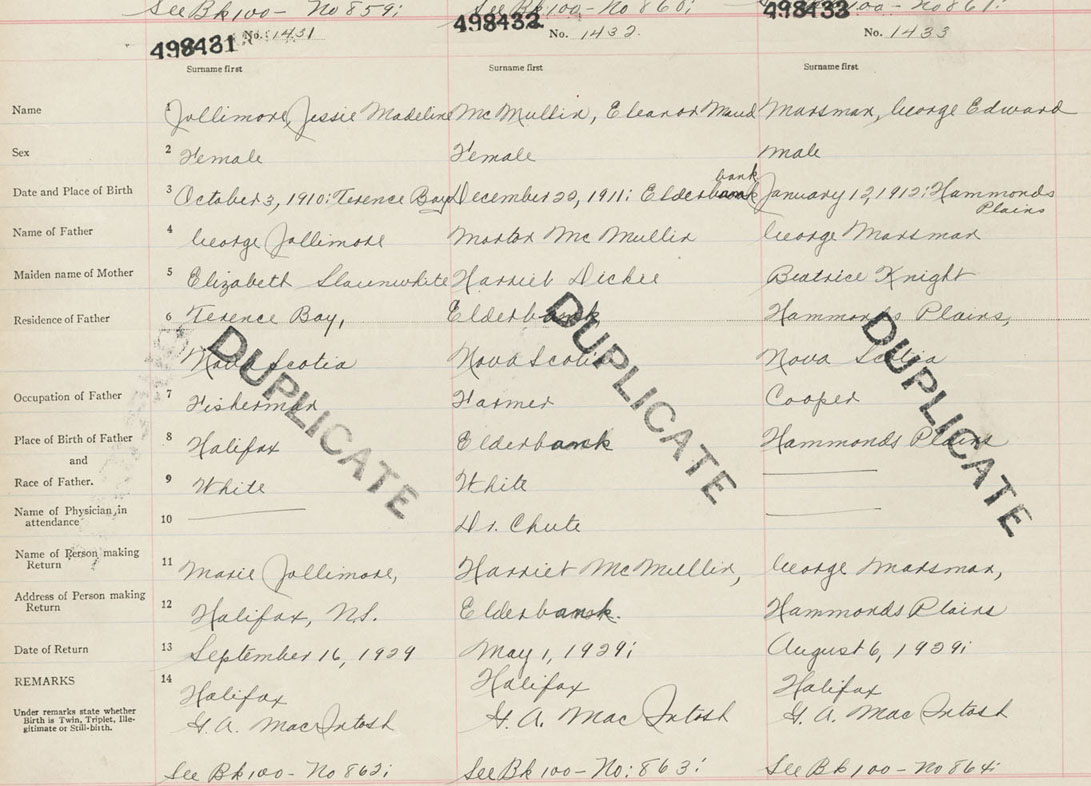 See Bk 100- No 859; See Bk 100- No 860; See Bk 100- No 861;
498431 No. 1431 498432 No. 1432. 498433 No. 1433
Surname first Surname first Surname first
Name 1 Jollimore, Jessie Madeline McMullin, Eleanor Maud Marsman, George Edward
Sex 2 Female Female Male
bank
Date and Place of Birth 3 October 3, 1910; Terence Bay December 22, 1911; Elderbank January 12, 1912; Hammonds
Plains
Name of Father 4 George Jollimore Morton McMullin George Marsman
Maiden name of Mother 5 Elizabeth Slaunwhite Harriet Dickie Beatrice Knight
Residence of Father 6 Terence Bay, Elderbank Hammonds Plains,
Nova Scotia Nova Scotia Nova Scotia
Occupation of Father 7 Fisherman Farmer Cooper
Place of Birth of Father 8 Halifax Elderbank Hammonds Plains
and
Race of Father. 9 White White
Name of Physician in
attendance 10 Dr. Chute
Name of Person making
Return 11 Marie Jollimore, Harriet McMullin, George Marsman,
Address of Person making
Return 12 Halifax, N.S. Elderbank. Hammonds Plains
Date of Return 13 September 16, 1929 May 1, 1929; August 6, 1929;
REMARKS 14 Halifax Halifax Halifax
Under remarks state whether
Birth is Twin, Triplet, Ille-
gitimate or Still-birth.
H. A. MacIntosh H. A. MacIntosh H. A. MacIntosh
See Bk 100- No 862; See Bk 100- No: 863; See Bk 100- No 864;
DUPLICATE DUPLICATE DUPLICATE